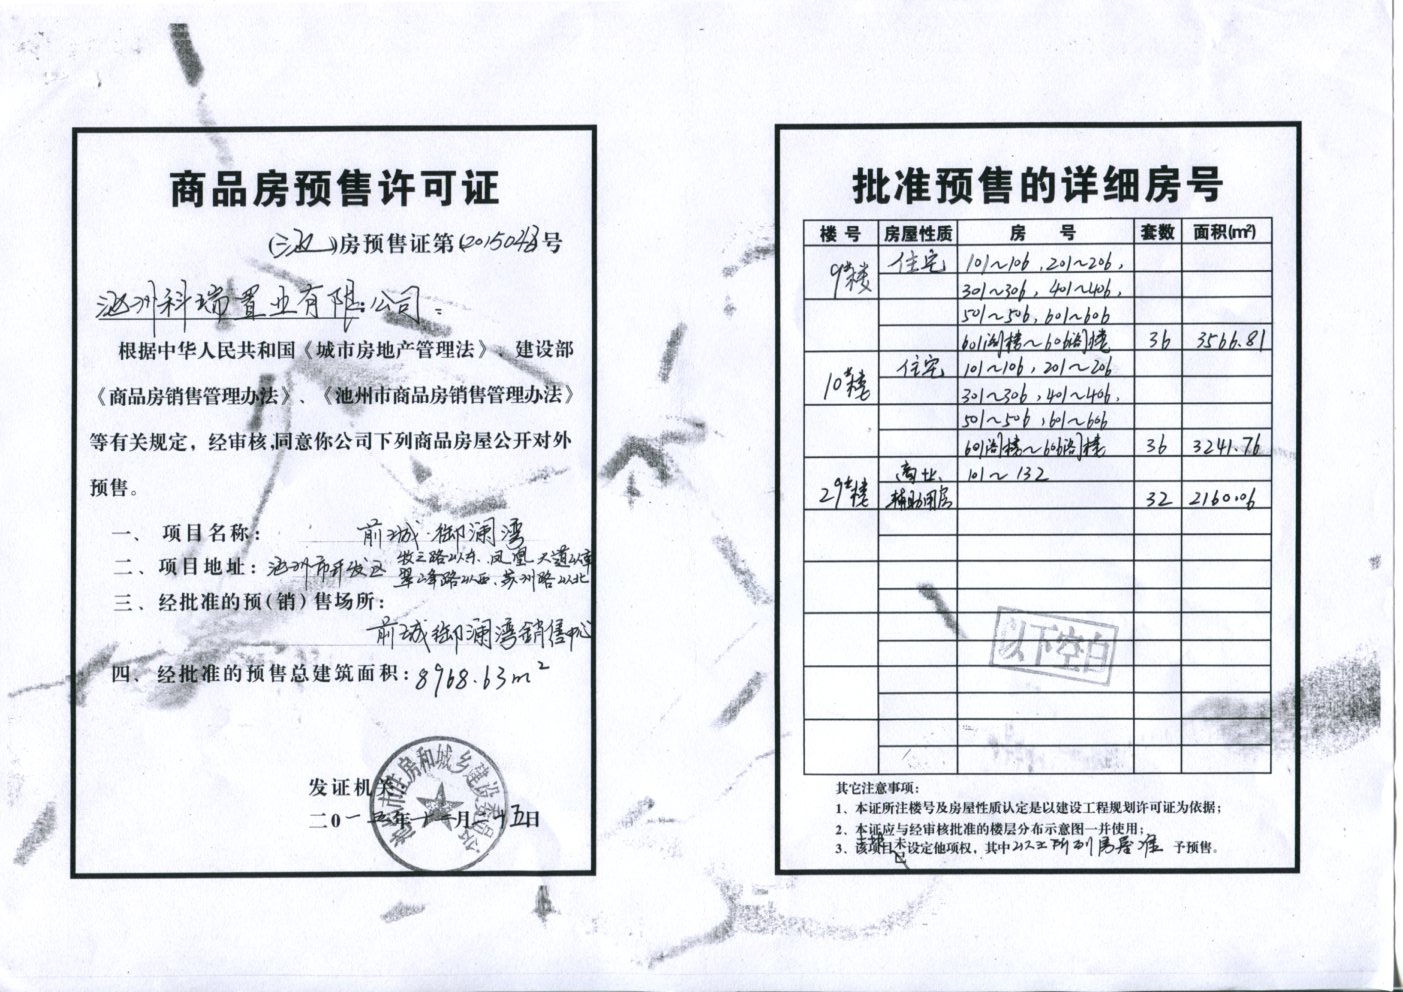 商品房预售许可证
(池)房预售证第(2015048)号
池州科瑞置业有限公司:
根据中华人民共和国《城市房地产管理法》、建设部
《商品房销售管理办法》、《池州市商品房销售管理办法》
等有关规定，经审核,同意你公司下列商品房屋公开对外
预售。
一、项目名称: 前城·御澜湾
二、项目地址: 池州市开发区 牧之路以东、凤凰大道以南
翠峰路以西、苏州路以北
三、经批准的预(销)售场所:
前城御澜湾销售中心
四、经批准的预售总建筑面积: 8968.63m²
发证机关
二0一五年十一月 十五日
池州市住房和城乡建设委员会
批准预售的详细房号
楼号 房屋性质 房号 套数 面积(m²)
9#楼 住宅 101~106,201~206,
301~306,401~406,
501~506,601~606
601阁楼~606阁楼 36 3566.81
10#楼 住宅 101~106,201~206
301~306,401~406,
501~506,601~606
601阁楼~606阁楼 36 3241.76
29#楼 商业、 101~132
辅助用房 32 2160.06
以下空白
其它注意事项:
1、本证所注楼号及房屋性质认定是以建设工程规划许可证为依据;
2、本证应与经审核批准的楼层分布示意图一并使用;
3、该项目未/已设定他项权，其中以上所列房屋准予预售。